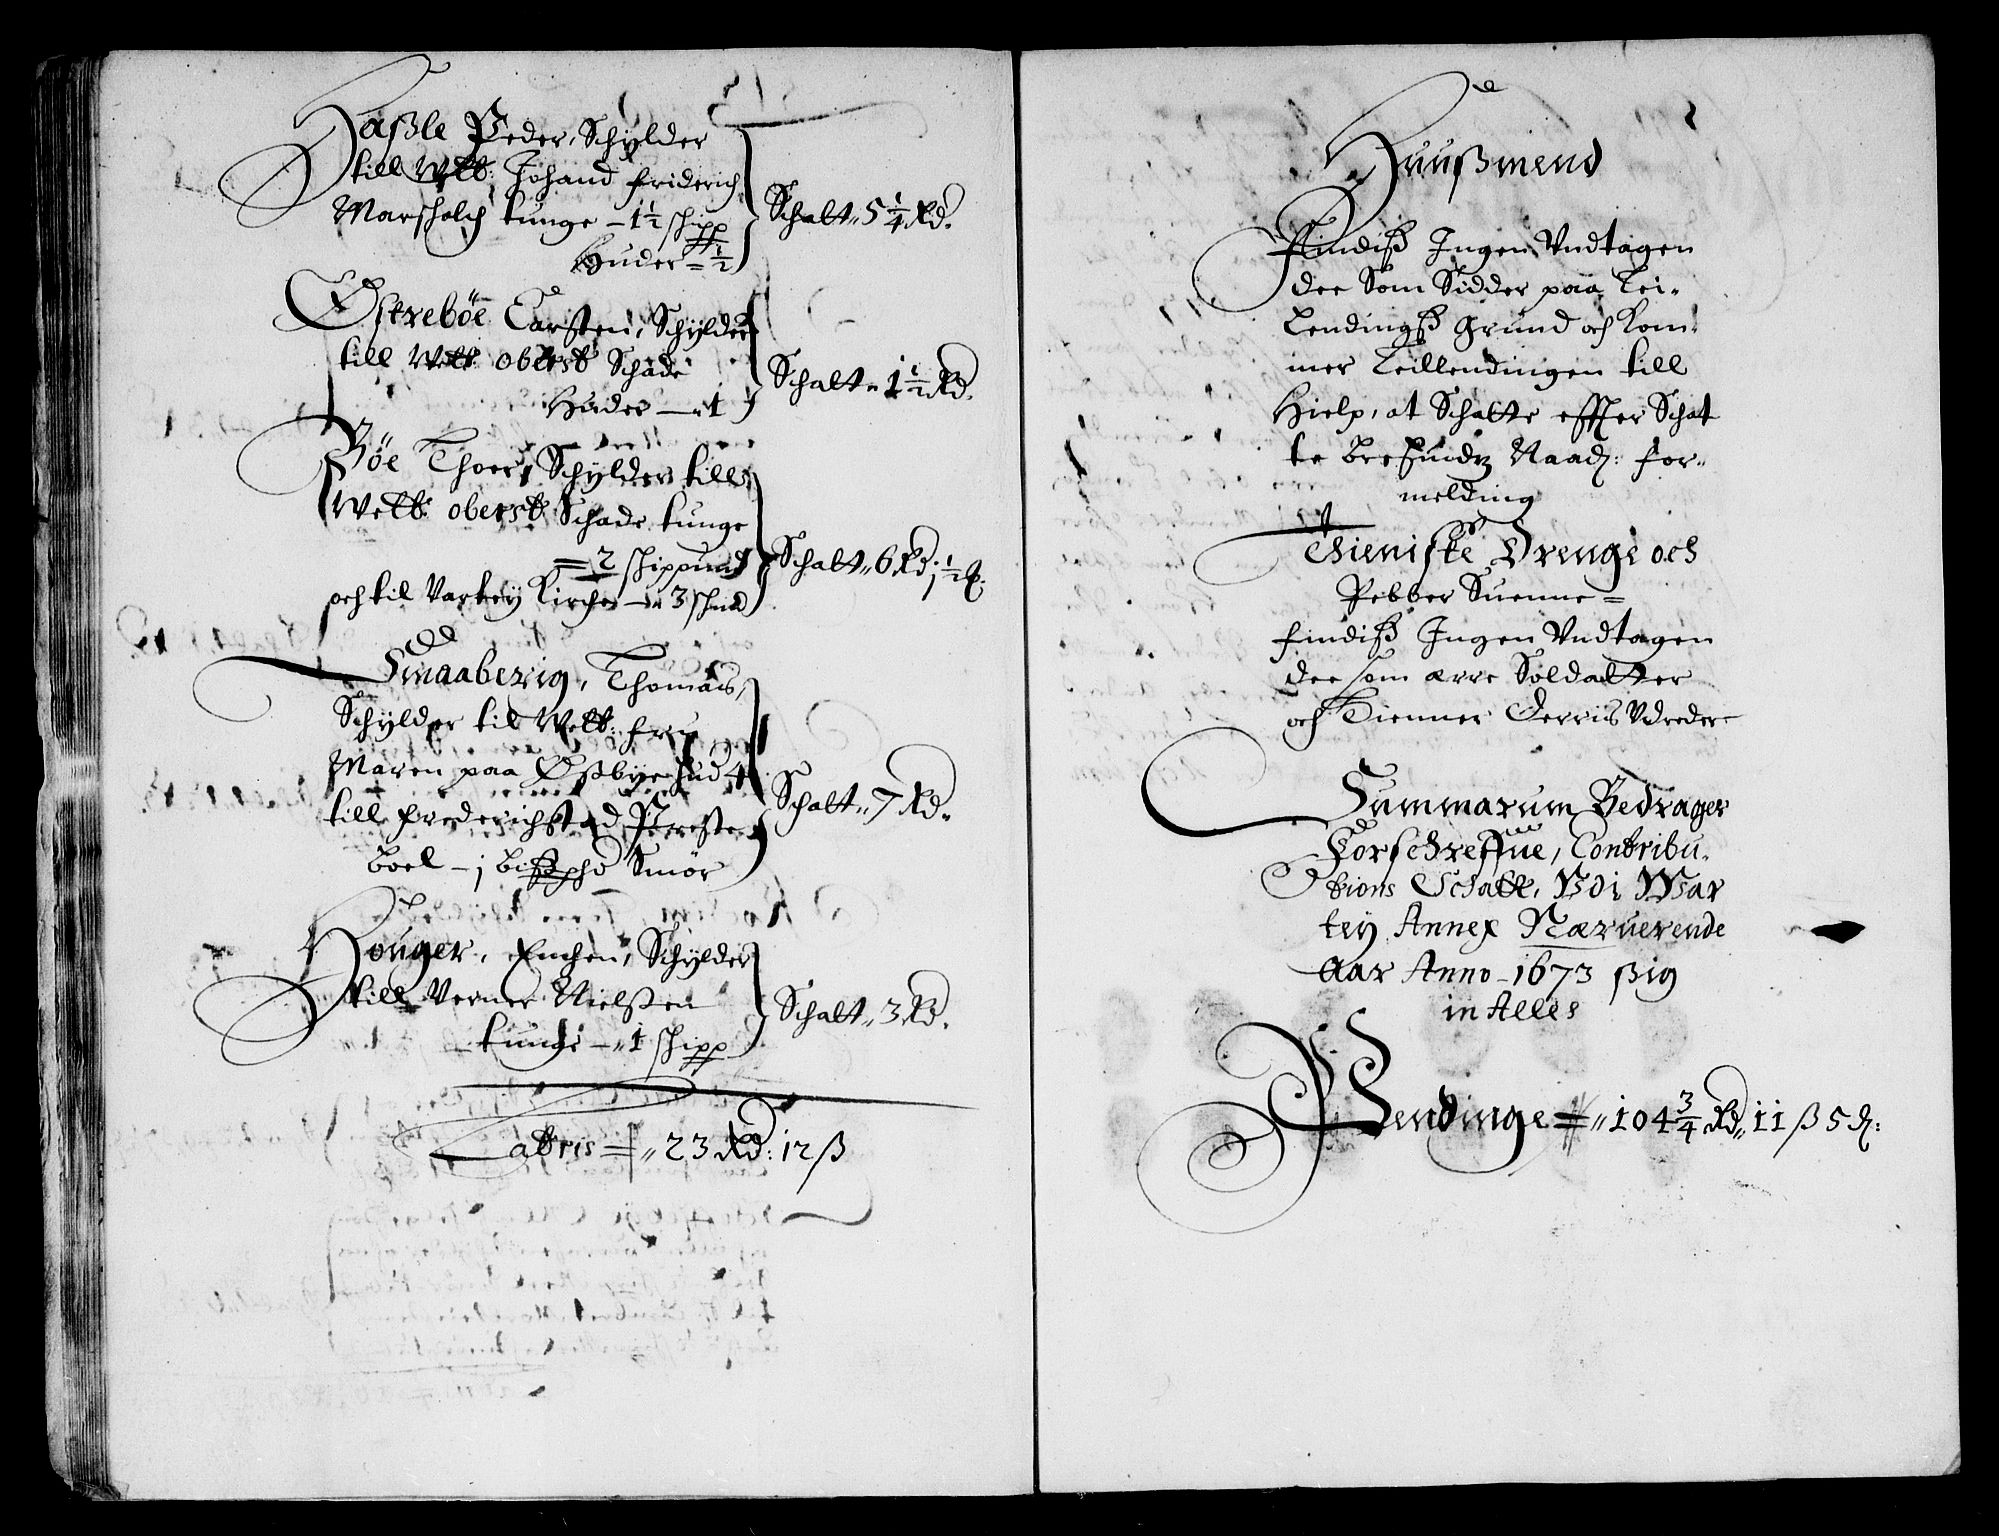 Haßle Peder, Schylder
till Welb: Johand Friderich
Marschalch tunge – 1½ schipp
Huder = ½
Schatt„ 5¼ Rd.
Østrebøe Carsten, Schylder
till Welb: oberst Schade
Huder — „ 1
Schatt„ 1½ Rd.
Bøe Thoer, Schylder till
Welb: oberst Schade tunge
= 2 schippund
och til Vartey Kirche – „ 3 schind
Schatt„ 6 Rd: ½ R:
Smaaberig, Thomas,
Schylder til Welb: Fru
Maren paa Østbye hud 4
till Frederichstad Preste
boel – j bißphd Smör
Schatt„ 7 Rd„
Houger, Enchen, Schylder
till Verner Nielsen
tunge – „ 1 schipp
Schatt„ 3 Rd.
Latris = „ 23 Rd: 12 ß
Huußmend
Findiß Ingen Vndtagen
dee Som Sidder paa Lei-
lendingß grund och kom-
mer Leillendingen till
Hielp, at Schatte effter Schat
te brefuidz Naad: for-
melding
Thieniste Drenge och
Pebber Suenne =
findiß Ingen Vndtagen
dee som ærre Soldatter
och Tienner Derris Vdreder
Summarum Bedrager
Forschreffue, Contribu-
tions Schatt, Vdi War
tey Annex Næruerende
Aar Anno – 1673 ßig
in Alles
Pendinge = „ 104¾ Rd„ 11 ß 5 d: